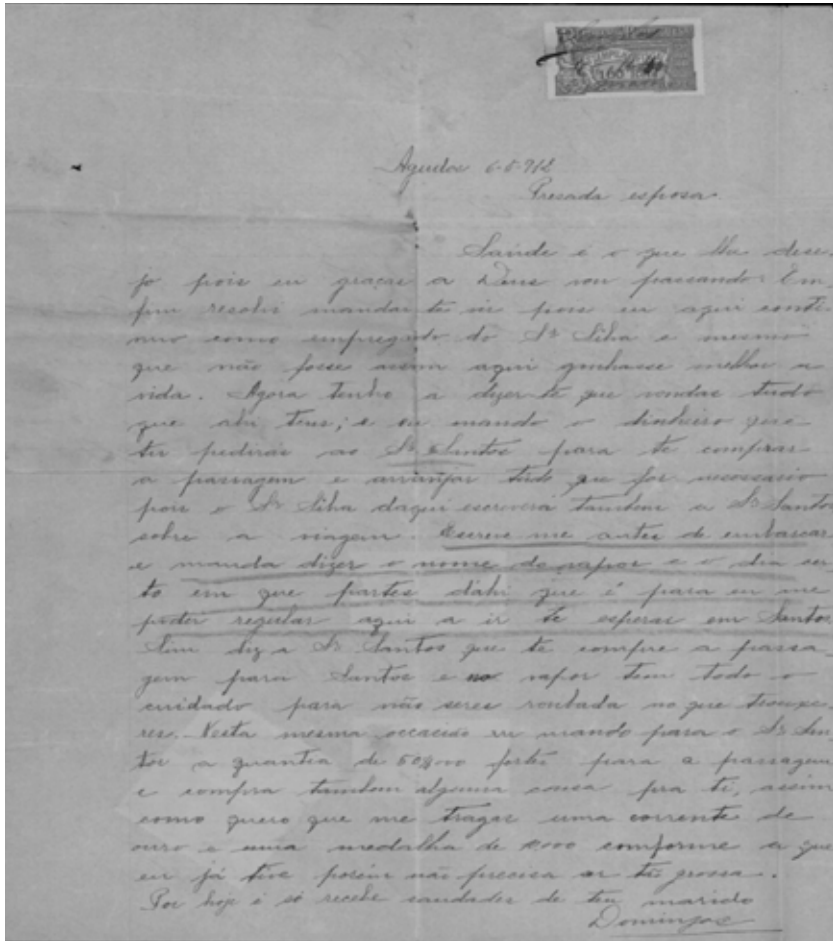 100
Agudos 6-5-912
Presada esposa
Saude é o que lhe dese-
jo pois eu graças a Deus vou passando. Em
fim resolvi mandar-te vir pois eu aqui conti
nuo como empregado do Sr Silva e mesmo
que não fosse assim aqui ganhasse melhor a
vida. Agora tenho a dizer-te que vendas tudo
que ahi tens; e eu mando o dinheiro que
tu pedirás ao Sr Santos para te comprar
a passagem e arranjar tudo que for necessario
pois o Sr Silva daqui escreverá tambem a Sr Santos
sobre a viagem. Escreve-me antes de embarcar
e manda dizer o nome do vapor e o dia ser
to em que partes dahi que é para eu me
poder regular aqui a ir te esperar em Santos
Sim diz a Sr Santos que te compre a passa-
gem para Santos e no vapor tem todo o
cuidado para não seres roubada no que trouxe-
res. Nesta mesma occasião eu mando para o Sr San
tos a quantia de fortes para a passagem
e compra tambem alguma cousa pra ti, assim
como quero que me tragas uma corrente de
ouro e uma medalha de conforme a que
eu já tive porém não precisa ser tão grossa.
Por hoje é só recebe saudades de teu marido
Domingos